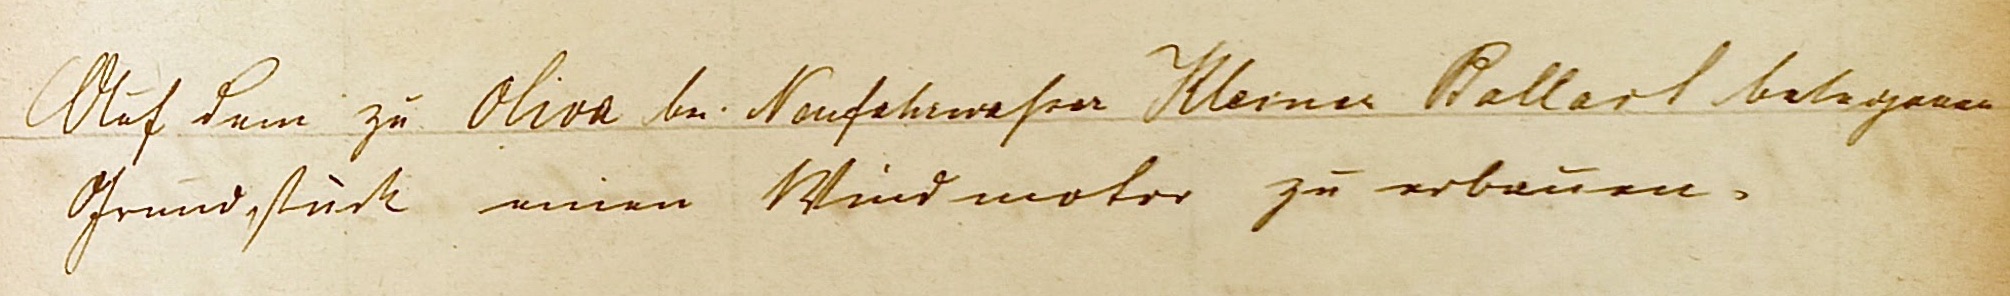 Auf dem zu Oliva bei Neufahrwasser Kleiner Ballast belegenen
Grundstück einen Windmotor zu erbauen.